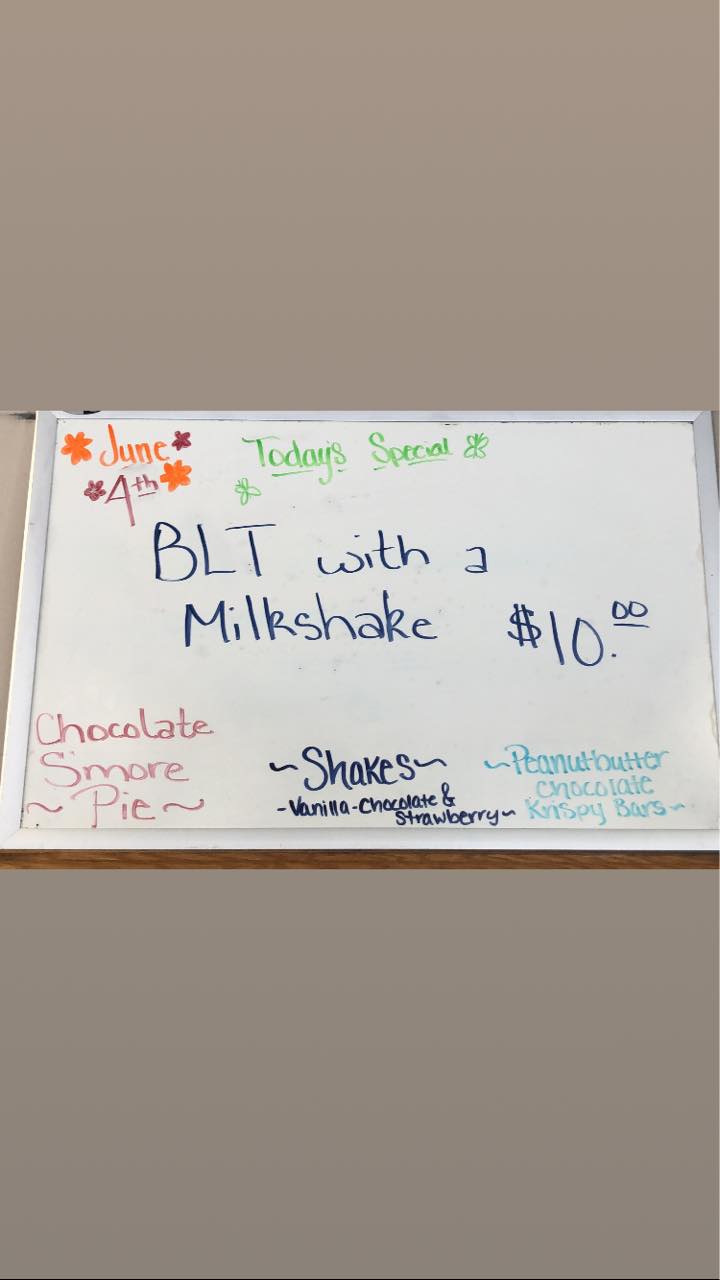 June
4th
Today's Special
BLT with a
Milkshake $10.00
Chocolate
S'more
~ Pie ~
~Shakes~
-Vanilla-Chocolate &
Strawberry~
~Peanutbutter
Chocolate
Krispy Bars~